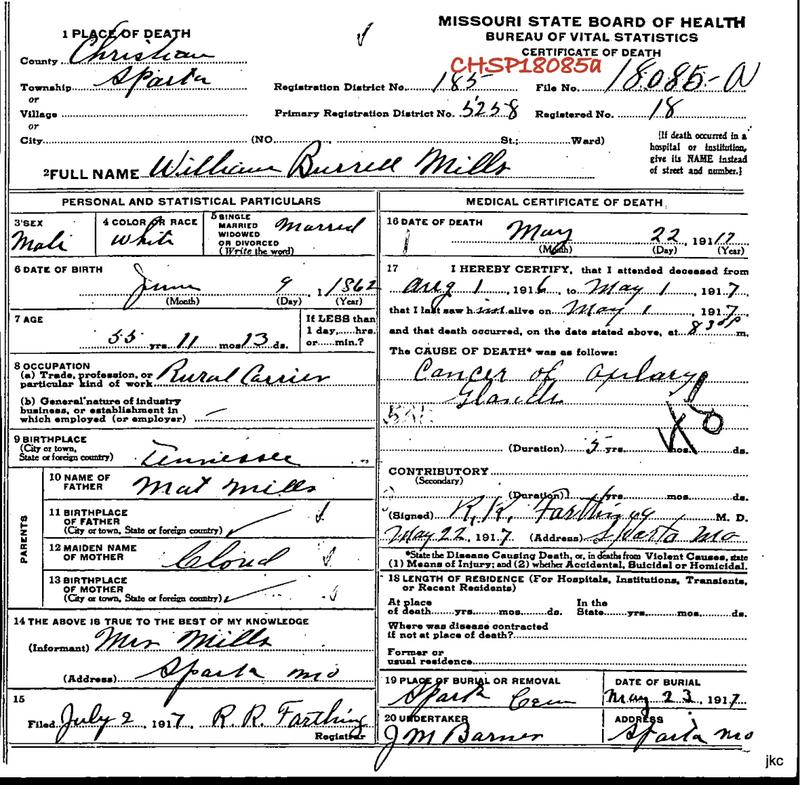 MISSOURI STATE BOARD OF HEALTH
BUREAU OF VITAL STATISTICS
CERTIFICATE OF DEATH
CHSP18085a
1 PLACE OF DEATH
County Christian
Township Sparta
Registration District No. 185
File No. 18085-A
or
Village
Primary Registration District No. 5258
Registered No. 18
or
City (NO. St.; Ward)
[If death occurred in a hospital or institution, give its NAME instead of street and number.]
2 FULL NAME William Burrell Mills
PERSONAL AND STATISTICAL PARTICULARS
3 SEX
Male
4 COLOR OR RACE
White
5 SINGLE
MARRIED
WIDOWED
OR DIVORCED
(Write the word)
Married
6 DATE OF BIRTH
June 9, 1862
(Month) (Day) (Year)
7 AGE
55 yrs. 11 mos. 13 ds.
If LESS than
1 day,....hrs.
or......min.?
8 OCCUPATION
(a) Trade, profession, or
particular kind of work Rural Carrier
(b) General nature of industry
business, or establishment in
which employed (or employer) —
9 BIRTHPLACE
(City or town,
State or foreign country) Tennessee
PARENTS
10 NAME OF
FATHER Mat Mills
11 BIRTHPLACE
OF FATHER
(City or town, State or foreign country)
12 MAIDEN NAME
OF MOTHER Cloud
13 BIRTHPLACE
OF MOTHER
(City or town, State or foreign country)
14 THE ABOVE IS TRUE TO THE BEST OF MY KNOWLEDGE
(Informant) Mrs Mills
(Address) Sparta mo
15
Filed July 2, 1917 R. R. Farthing
Registrar
MEDICAL CERTIFICATE OF DEATH
16 DATE OF DEATH
May 22, 1917
(Month) (Day) (Year)
17 I HEREBY CERTIFY, that I attended deceased from
Aug 1, 1916, to May 1, 1917,
that I last saw him alive on May 1, 1917,
and that death occurred, on the date stated above, at 830 P m.
The CAUSE OF DEATH* was as follows:
Cancer of
Glands
(Duration) 5 yrs. mos. ds.
CONTRIBUTORY
(Secondary)
(Duration) yrs. mos. ds.
(Signed) R. R. Farthing M. D.
May 22, 1917 (Address) Sparta Mo
*State the Disease Causing Death, or, in deaths from Violent Causes, state
(1) Means of Injury; and (2) whether Accidental, Suicidal or Homicidal.
18 LENGTH OF RESIDENCE (For Hospitals, Institutions, Transients,
or Recent Residents)
At place
of death......yrs......mos......ds.
In the
State......yrs......mos......ds.
Where was disease contracted
if not at place of death?
Former or
usual residence
19 PLACE OF BURIAL OR REMOVAL
Sparta Cem
DATE OF BURIAL
May 23, 1917
20 UNDERTAKER
J M Barner
ADDRESS
Sparta mo
jkc